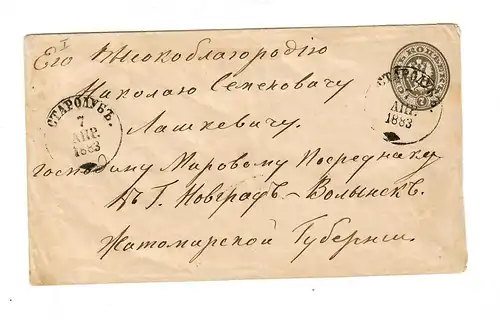 Его Высокоблагородію
Николаю Семеновичу
Лашкевичу.
господину Мировому Посреднику
въ Г. Новградъ-Волынскъ.
Житомирской Губерніи.
СТАРОДУБЪ.
7
АПР.
1883
СТАРОДУБЪ.
АПР.
1883
СЕМЬ КОПѢЕКЪ